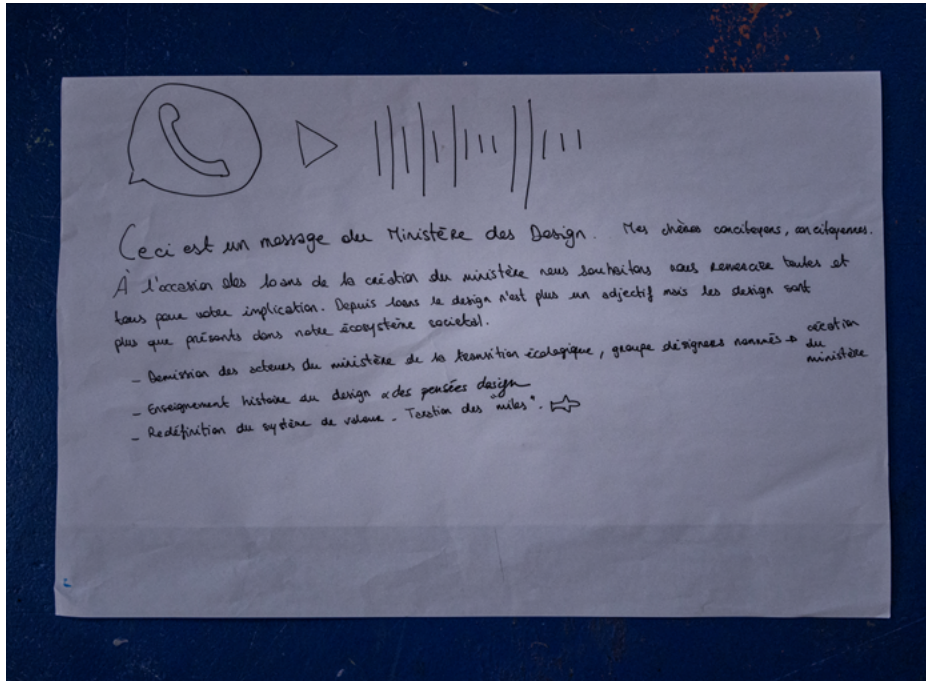 Ceci est un message du Ministère des Design. Mes chères concitoyens, concitoyennes.
À l'occasion des 10 ans de la création du ministère nous souhaitons vous remercier toutes et
tous pour votre implication. Depuis 10 ans le design n'est plus un adjectif mais les design sont
plus que présents dans notre écosystème societal.
- Demission des acteurs du ministère de la transition écologique, groupe désigners nommés → création
du
ministère
- Enseignement histoire du design & des pensées design
- Redéfinition du système de valeur - des "miles".